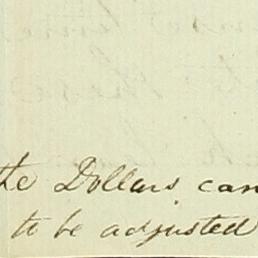 the Dollars can
to be adjusted